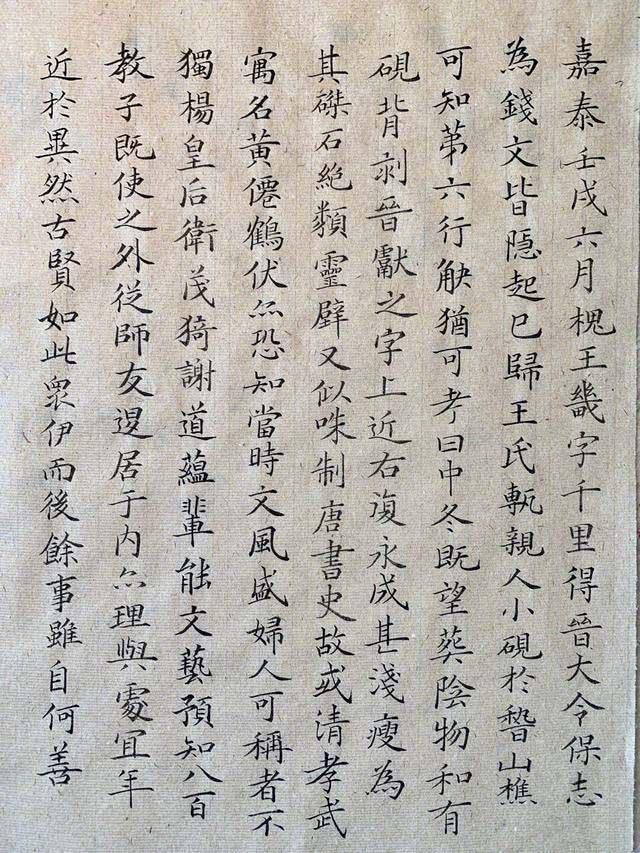 嘉泰壬戌六月槐王畿字千里得晉大令保志
為錢文皆隱起已歸王氏甎親人小硯於稽山樵
可知第六行觖猶可考曰中冬既望葬陰物和有
硯背剥晉獻之字上近右復永成甚淺瘦為
其磔石絶類靈壁又似咮制唐書史故或清孝武
寓名黄僊鶴伏尒恐知當時文風盛婦人可稱者不
獨楊皇后衛茂猗謝道蘊輩能文藝預知八百
教子既使之外従師友退居于内尒理與處宜年
近於異然古賢如此衆伊而後餘事雖自何善